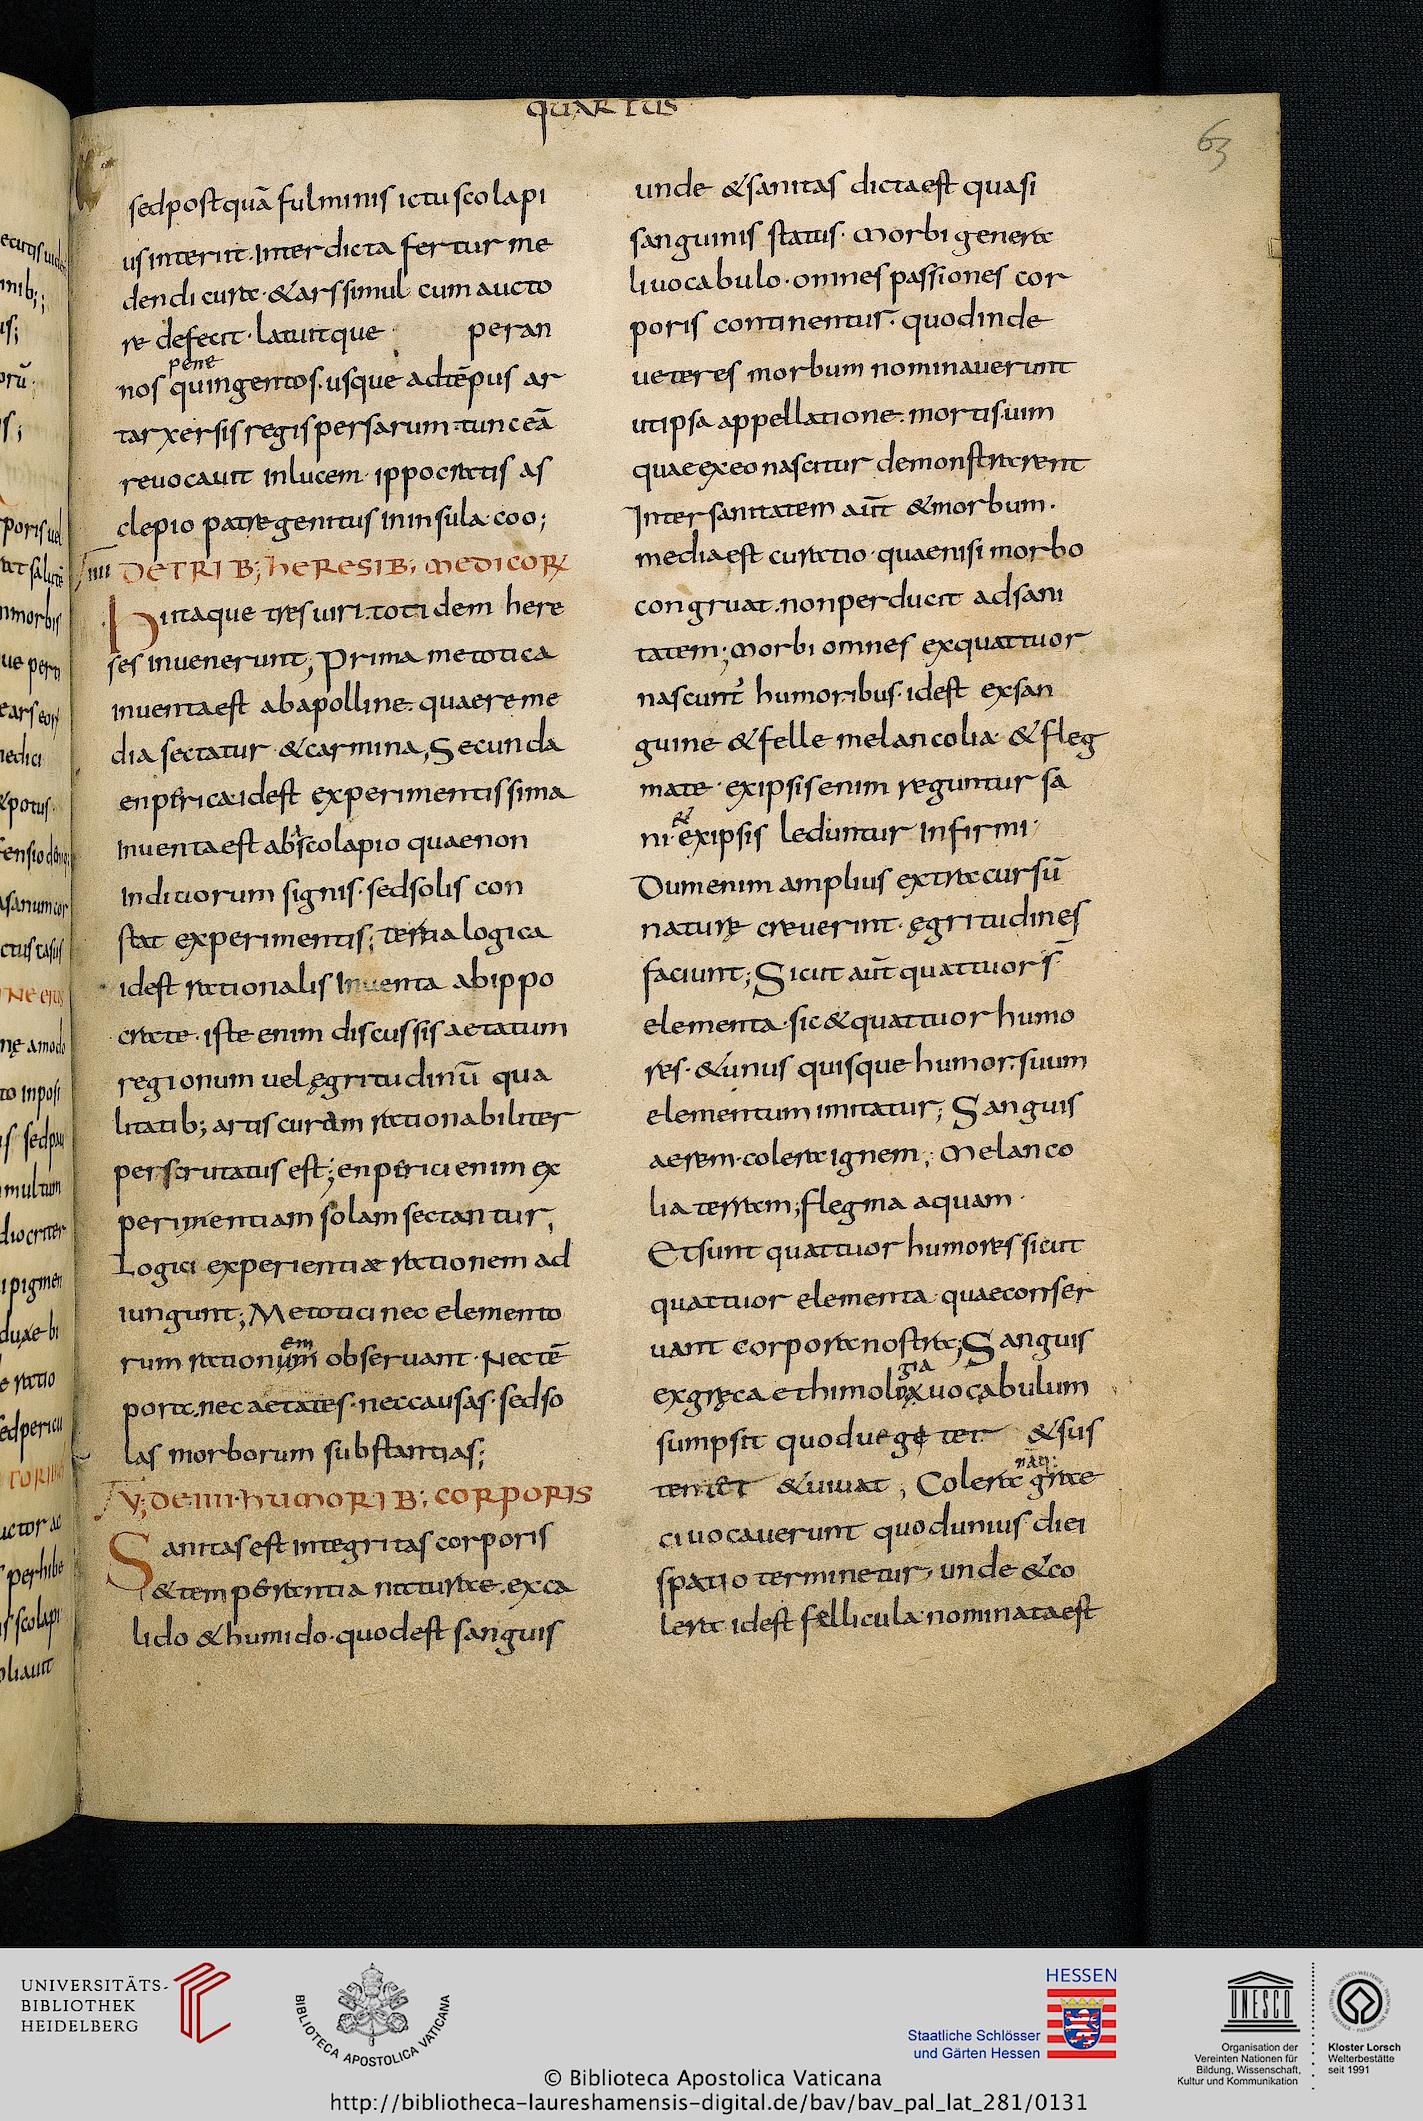 QUARTUS
63
sedpostquā fulminis ictu scolapi
us interiit. Interdicta fertur me
dendi cura. & ars simul cum aucto
re defecit. latuitque peran
pene
nos quingentos. usque adtēpus ar
tarxersis regis persarum. tunc eā
reuocauit inlucem ippocratis as
clepio patre genitus in insula coo;
IIII DE TRIB; HERESIB; MEDICORꝜ
Hi itaque tres uiri. totidem here
ses inuenerunt; Prima metotica
inuenta est ab apolline. quae reme
dia sectatur & carmina; Secunda
enpirica idest experimentissima
inuenta est ab scolapio quae non
indiciorum signis. sed solis con
stat experimentis; tertia logica
idest rationalis inuenta ab ippo
crate. iste enim discussis aetatum
regionum uel ęgritudinū qua
litatib; artis curam rationabiliter
perscrutatus est; enpirici enim ex
perimentiam solam sectantur,
Logici experientiæ rationem ad
iungunt; Metotici nec elemento
em
rum rationum obseruant. Nec tē
pora. nec aetates. nec causas. sed so
las morborum substantias;
V; DE IIII. HUMORIB; CORPORIS
Sanitas est integritas corporis
& temperantia naturae. ex ca
lido & humido. quod est sanguis
unde & sanitas dicta est quasi
sanguinis status. Morbi genera
li uocabulo. omnes passiones cor
poris continentur. quod inde
ueteres morbum nominauerunt
ut ipsa appellatione. mortis uim
quae ex eo nascitur demonstrarent
Inter sanitatem aūt & morbum.
media est curatio. quae nisi morbo
congruat. non perducit ad sani
tatem; Morbi omnes ex quattuor
nascunt̄ humoribus. idest ex san
guine & felle melancolia & fleg
mate. ex ipsis enim reguntur sa
&
ni. ex ipsis leduntur infirmi.
Dum enim amplius extra cursū
naturę creuerint. ęgritudines
faciunt; Sicut aūt quattuor s̄
elementa. sic & quattuor humo
res. & unus quisque humor. suum
elementum imitatur; Sanguis
aerem. colera ignem; Melanco
lia terram; flegma aquam.
Et sunt quattuor humores sicut
quattuor elementa. quae conser
uant corpora nostra; Sanguis
gia
ex gręca ethimolox uocabulum
sumpsit quod uegeter & sus
tentet & uiuat; Colera grae
ci uocauerunt quod unius diei
spatio terminetur, unde & co
lera idest fellicula nominata est
UNIVERSITÄTS-
BIBLIOTHEK
HEIDELBERG
BIBLIOTECA APOSTOLICA VATICANA
HESSEN
Staatliche Schlösser
und Gärten Hessen
UNESCO
Organisation der
Vereinten Nationen für
Bildung, Wissenschaft,
Kultur und Kommunikation
Kloster Lorsch
Welterbestätte
seit 1991
© Biblioteca Apostolica Vaticana
http://bibliotheca-laureshamensis-digital.de/bav/bav_pal_lat_281/0131